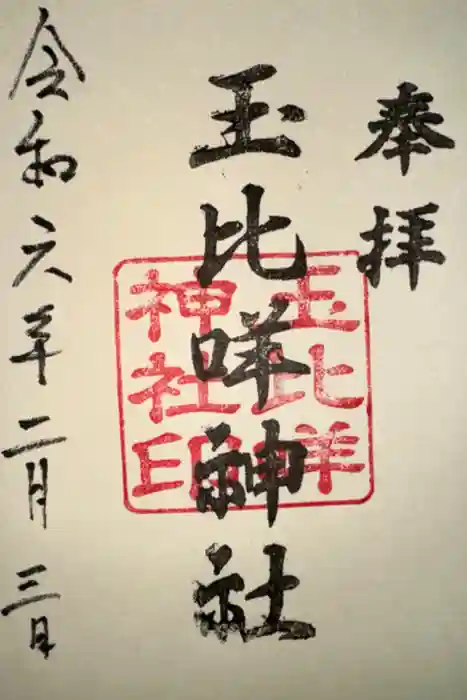 奉拝
玉比咩神社
玉比咩
神社印
令和六年二月三日